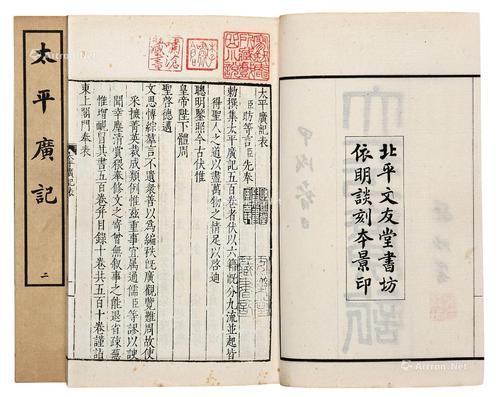 北平文友堂書坊
依明談刻本景印
太平廣記表
臣昉等言臣先奉
勅撰集太平廣記五百卷者伏以六籍旣分九流並起皆
得聖人之道以盡萬物之情足以啓迪
聰明鑒照今古伏惟
皇帝陛下體周
聖啓德邁
文思博綜羣言不遺衆善以爲編秩旣廣觀覽難周故使
采摭菁英裁成類例惟兹重事宜屬通儒臣等謬以諛
聞幸塵清賞猥奉修文之寄曾無敘事之能退省疎蕪
惟增靦冒其書五百卷幷目錄十卷共五百十卷謹詣
東上閤門奉表
太平廣記
二
Artron.Net